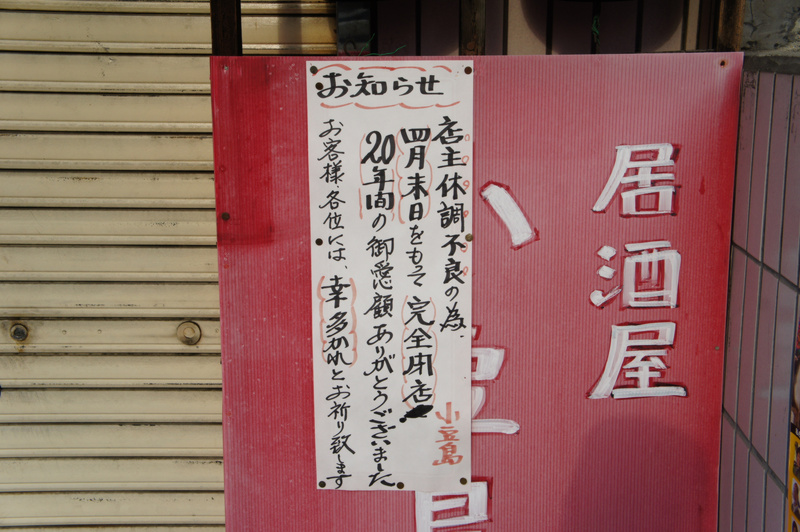 居酒屋
お知らせ
店主休調不良の為、
四月末日をもって完全閉店
20年間の御愛顧ありがとうございました
お客様各位には、幸多かれとお祈り致します
小豆島